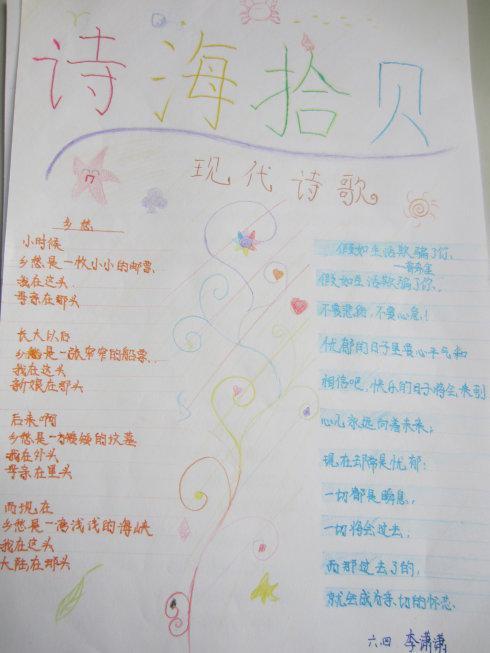 诗海拾贝
现代诗歌
乡愁
小时候
乡愁是一枚小小的邮票
我在这头
母亲在那头
长大以后
乡愁是一张窄窄的船票
我在这头
新娘在那头
后来啊
乡愁是一方矮矮的坟墓
我在外头
母亲在里头
而现在
乡愁是一湾浅浅的海峡
我在这头
大陆在那头
假如生活欺骗了你
——普希金
假如生活欺骗了你，
不要悲伤，不要心急！
忧郁的日子里要心平气和
相信吧，快乐的日子将会来到
心儿永远向着未来，
现在却常是忧郁：
一切都是瞬息，
一切将会过去，
而那过去了的，
就会成为亲切的怀恋.
六.四 李潇潇